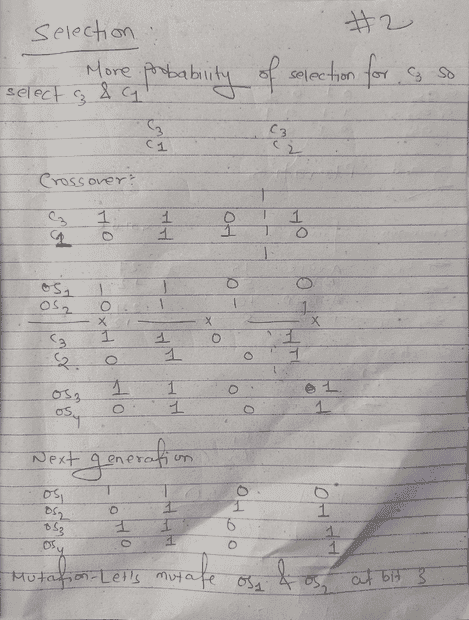 #2
Selection :
More probability of selection for C3 so
select C3 & C1
C3 C3
C1 C2
Crossover:
C3 1 1 0 | 1
C1 0 1 1 | 0
OS1 1 1 0 0
OS2 0 1 1 1
x x x
C3 1 1 0 1
C2 0 1 0 1
OS3 1 1 0 1
OS4 0 1 0 1
Next generation
OS1 1 1 0 0
OS2 0 1 1 1
OS3 1 1 0 1
OS4 0 1 0 1
Mutation - Let's mutate OS1 & OS2 at bit 3